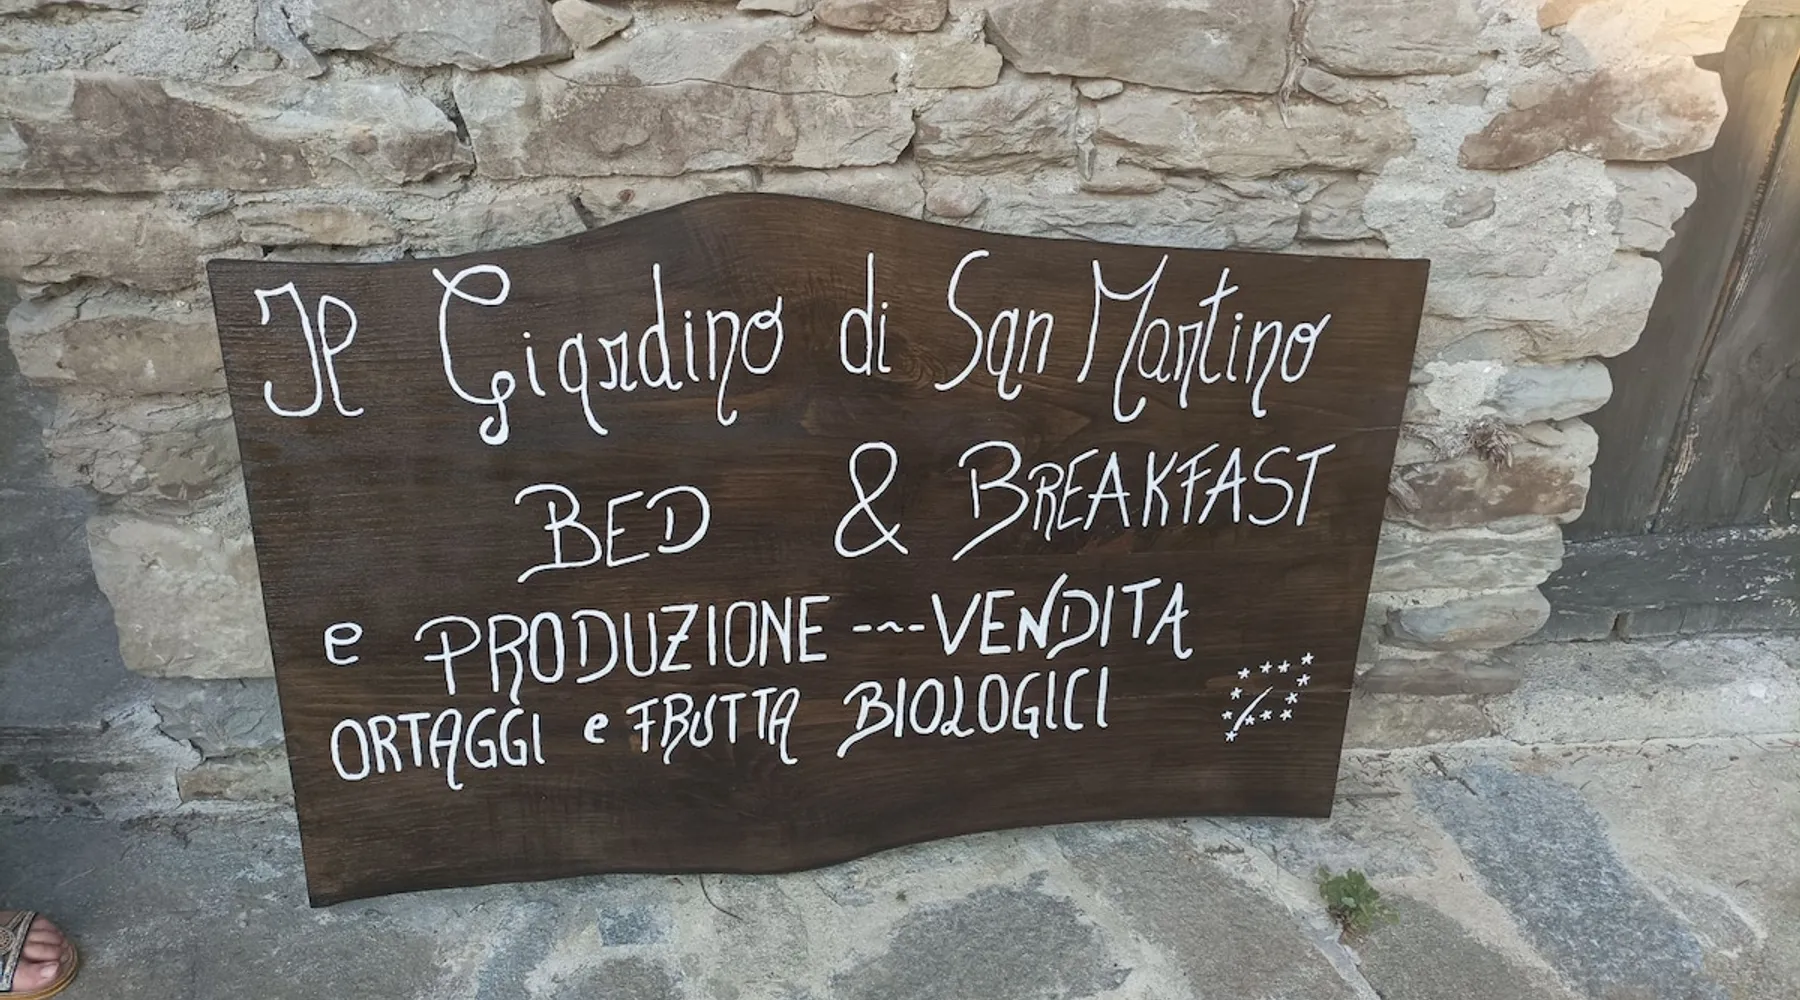 Il Giardino di San Martino
BED & BREAKFAST
e PRODUZIONE --~-VENDITA
ORTAGGI e FRUTTA BIOLOGICI